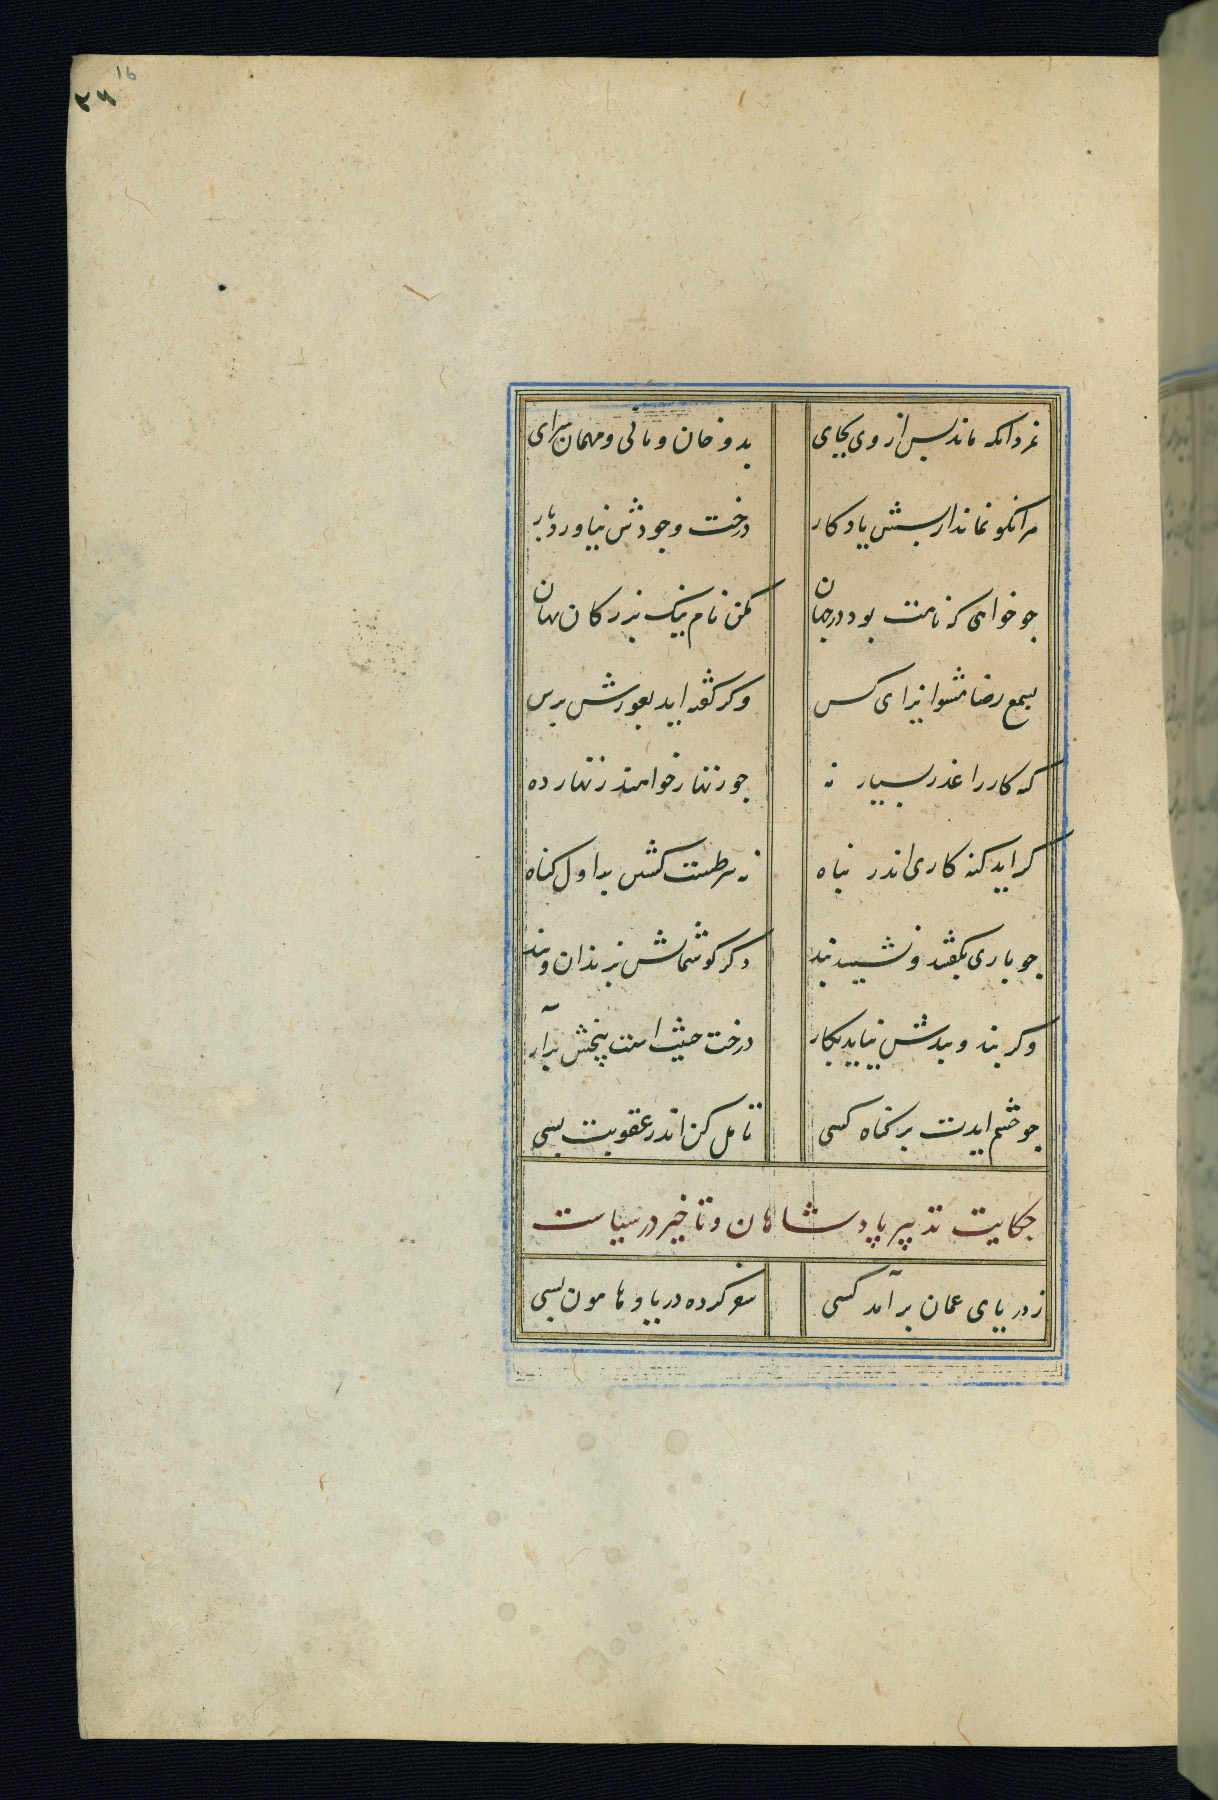 16
۲۴
نمرد انکه ماند پس از وی بجای بدو خان و مانی و مهمان سرای
هرانکو نماند از پسش یادکار درخت وجودش نیاورد بار
جو خواهی که نامت بود در جهان مکن نام نیک بزرکان نهان
بسمع رضا مشنو ایزای کس وکر کفته اید بغورش برس
کنه کار را عذر بسیار نه جو زنهار خواهند زنهار ده
کر اید کنه کاری اندر پناه نه شرطست کشتن باول کناه
جو باری بکفتند و نشنید پند دکر کوشمالش بزندان و بند
وکر پند و بندش نیاید بکار درخت خبیث است بیخش برآر
جو خشم ایدت بر کناه کسی تامل کن اندر عقوبت بسی
حکایت تدبیر پادشاهان و تاخیر در سیاست
ز دریای عمان برآمد کسی سفر کرده دریا و هامون بسی